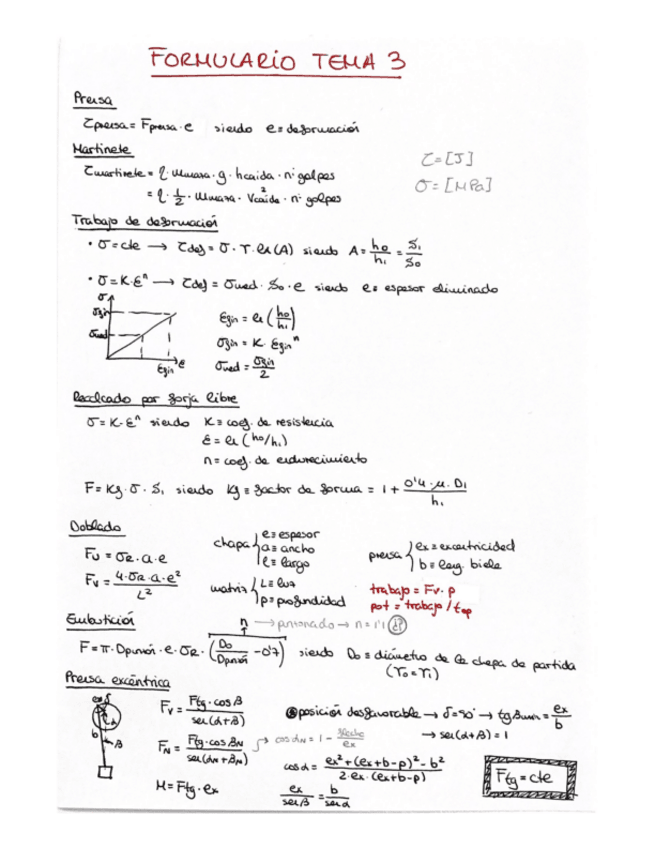 FORMULARIO TEMA 3
Prensa
τprensa = Fprensa · e siendo e = deformación
Martinete
τmartinete = η · mmaza · g · hcaída · nº golpes
= η · 1/2 · mmaza · Vcaída² · nº golpes
τ = [J]
σ = [MPa]
Trabajo de deformación
• σ = cte → τdef = σ · V · ln(A) siendo A = h0/h1 = S1/S0
• σ = K·ε^n → τdef = σmed · S0 · e siendo e = espesor eliminado
σ
σfin
σmed
εfin
ε
εfin = ln (h0/h1)
σfin = K · εfin^n
σmed = σfin/2
Recalcado por forja libre
σ = K·ε^n siendo K ≡ coef. de resistencia
ε = ln (h0/h1)
n = coef. de endurecimiento
F = Kf · σ · S1 siendo Kf ≡ factor de forma = 1 + 0'4·μ·D1/h1
Doblado
FU = σR · a · e
FV = 4·σR·a·e²/L²
chapa { e ≡ espesor
a ≡ ancho
l ≡ largo
matriz { L ≡ luz
p ≡ profundidad
prensa { ex ≡ excentricidad
b ≡ long. biela
trabajo = Fv · p
pot = trabajo / top
Embutición
n → punzonado → n = 1'1
F = π · Dpunzón · e · σR · (D0/Dpunzón - 0'7) siendo D0 ≡ diámetro de la chapa de partida
(r0 = r1)
Prensa excéntrica
ex
δ
α
b
β
FV = Ftg · cosβ / sen(α+β)
FN = Ftg · cosβN / sen(αN+βN)
cosαN = 1 - flecha/ex
M = Ftg · ex
posición desfavorable → δ = 90° → tgβmin = ex/b
→ sen(α+β) = 1
cosα = ex² + (ex+b-p)² - b² / 2·ex·(ex+b-p)
ex/senβ = b/senα
Ftg = cte